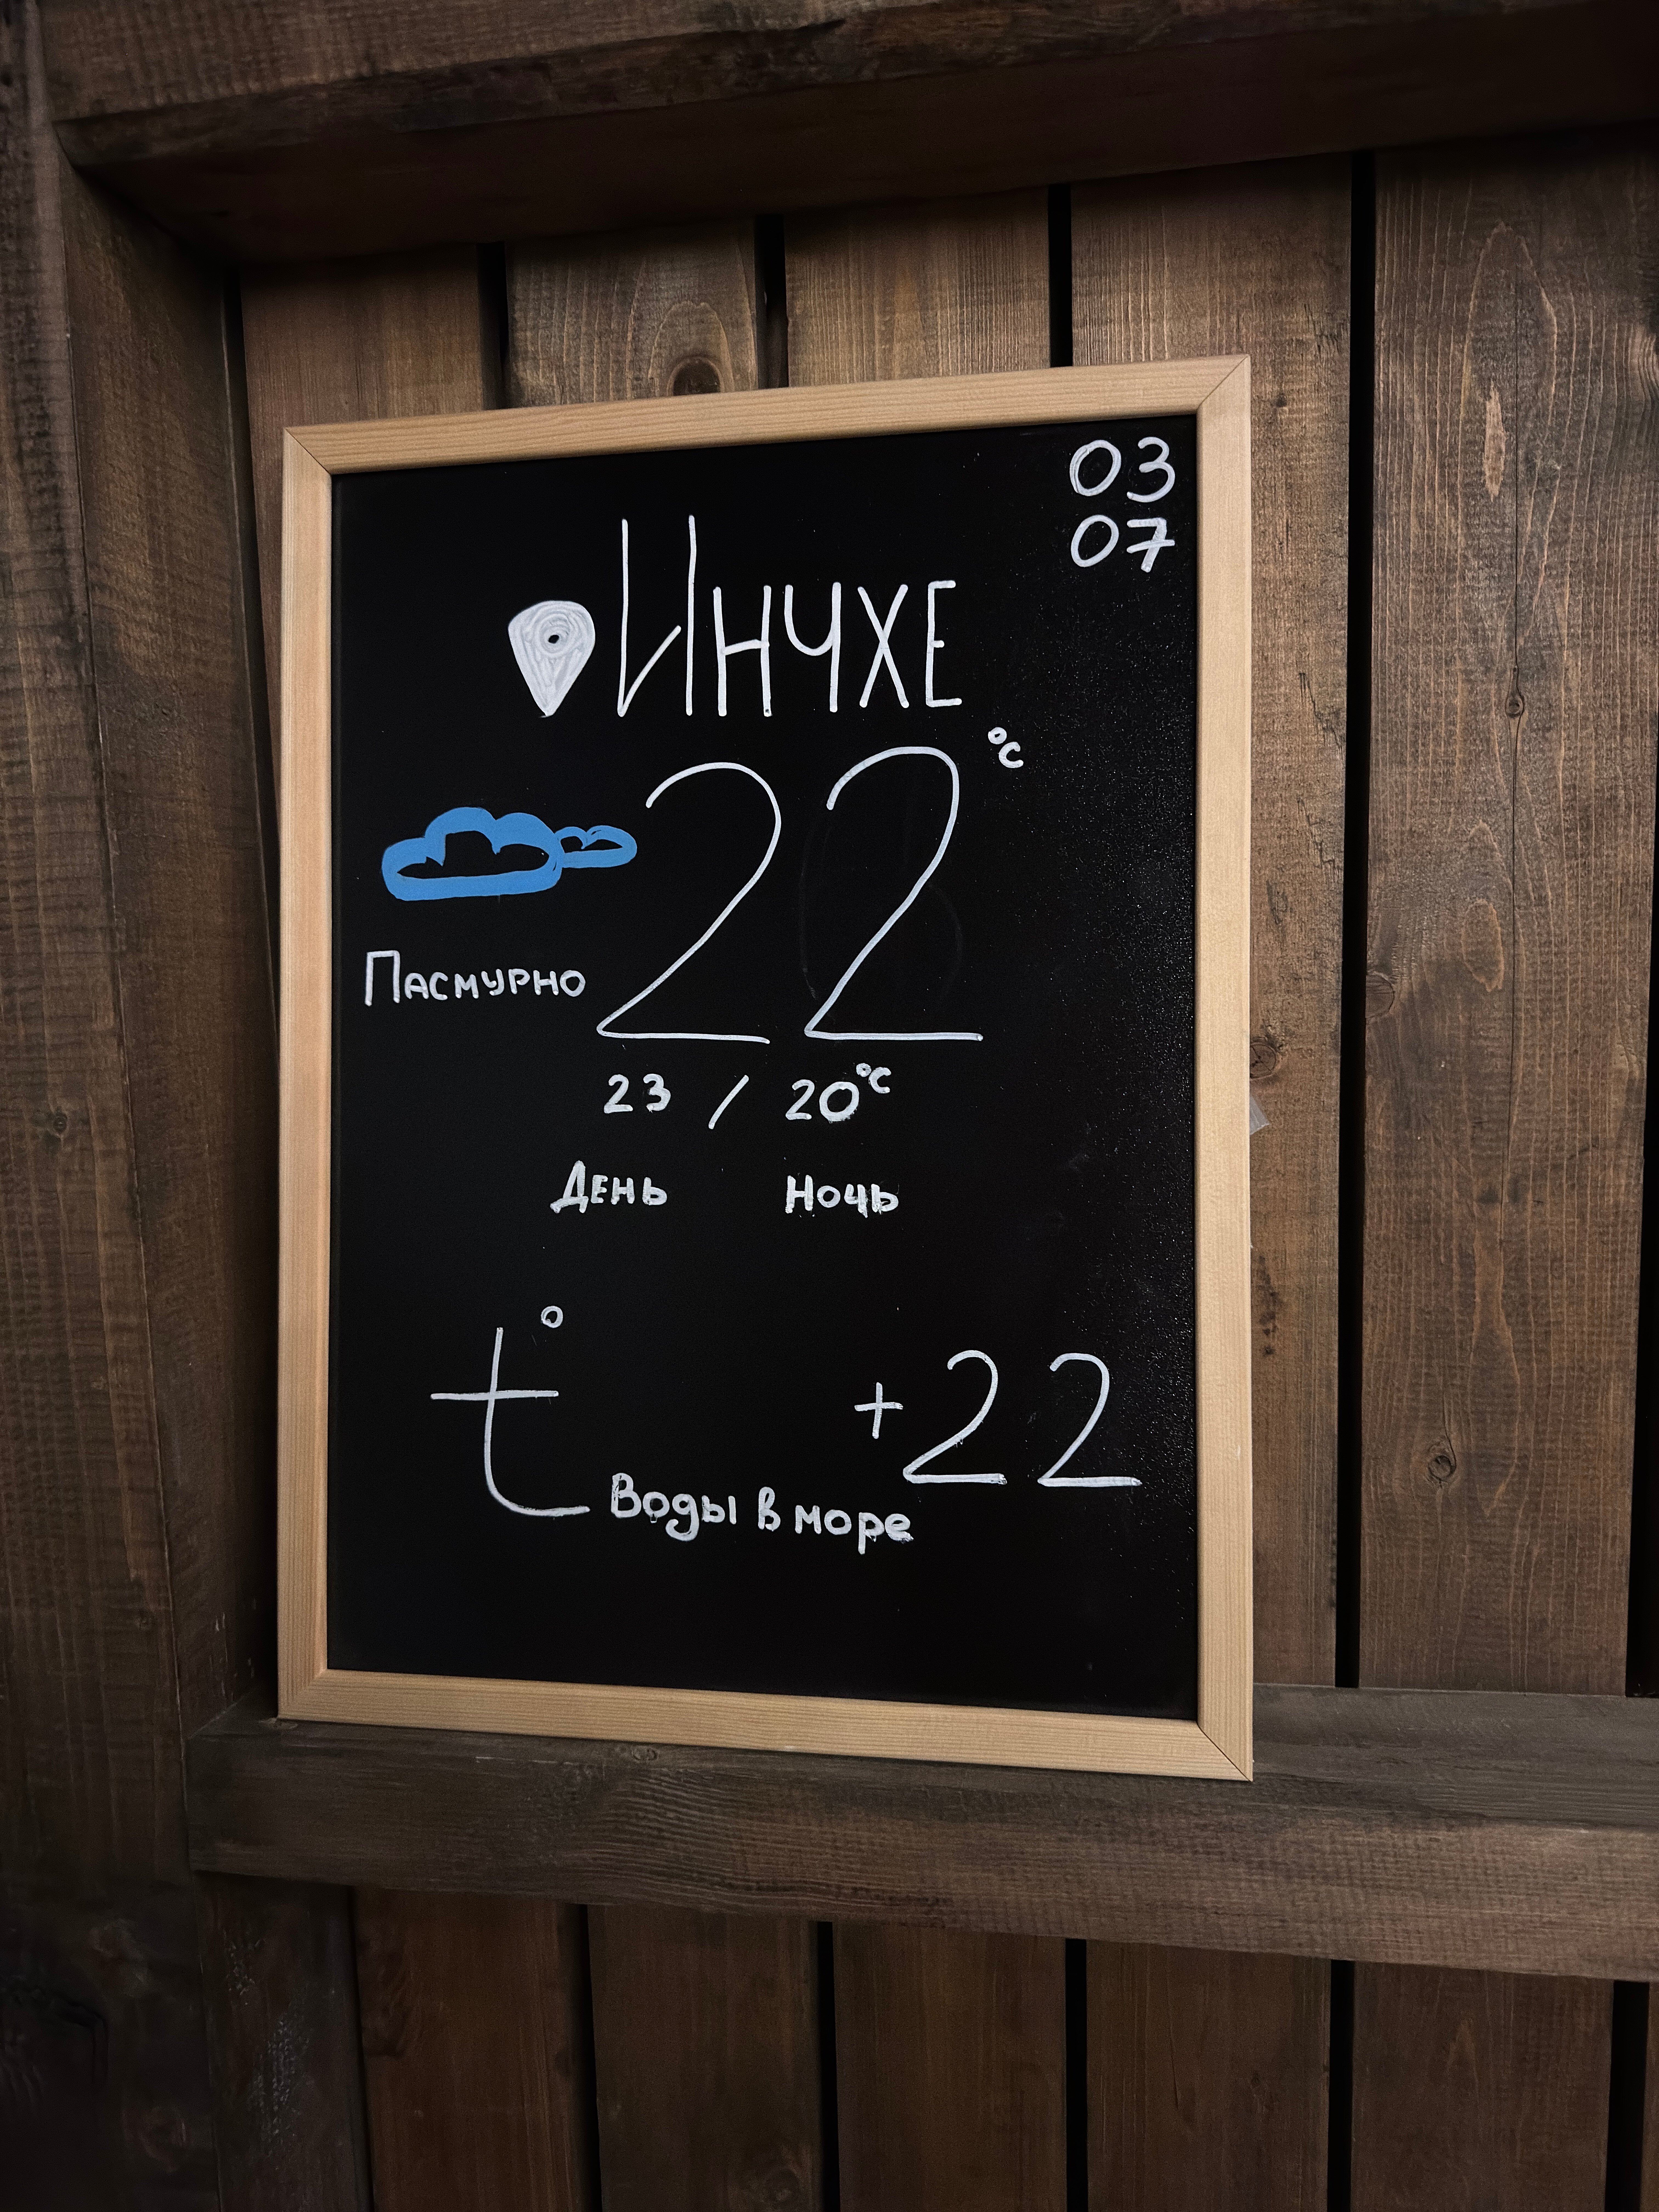 03
07
Инчхе
22 °C
Пасмурно
23 / 20°C
День Ночь
t° Воды в море +22